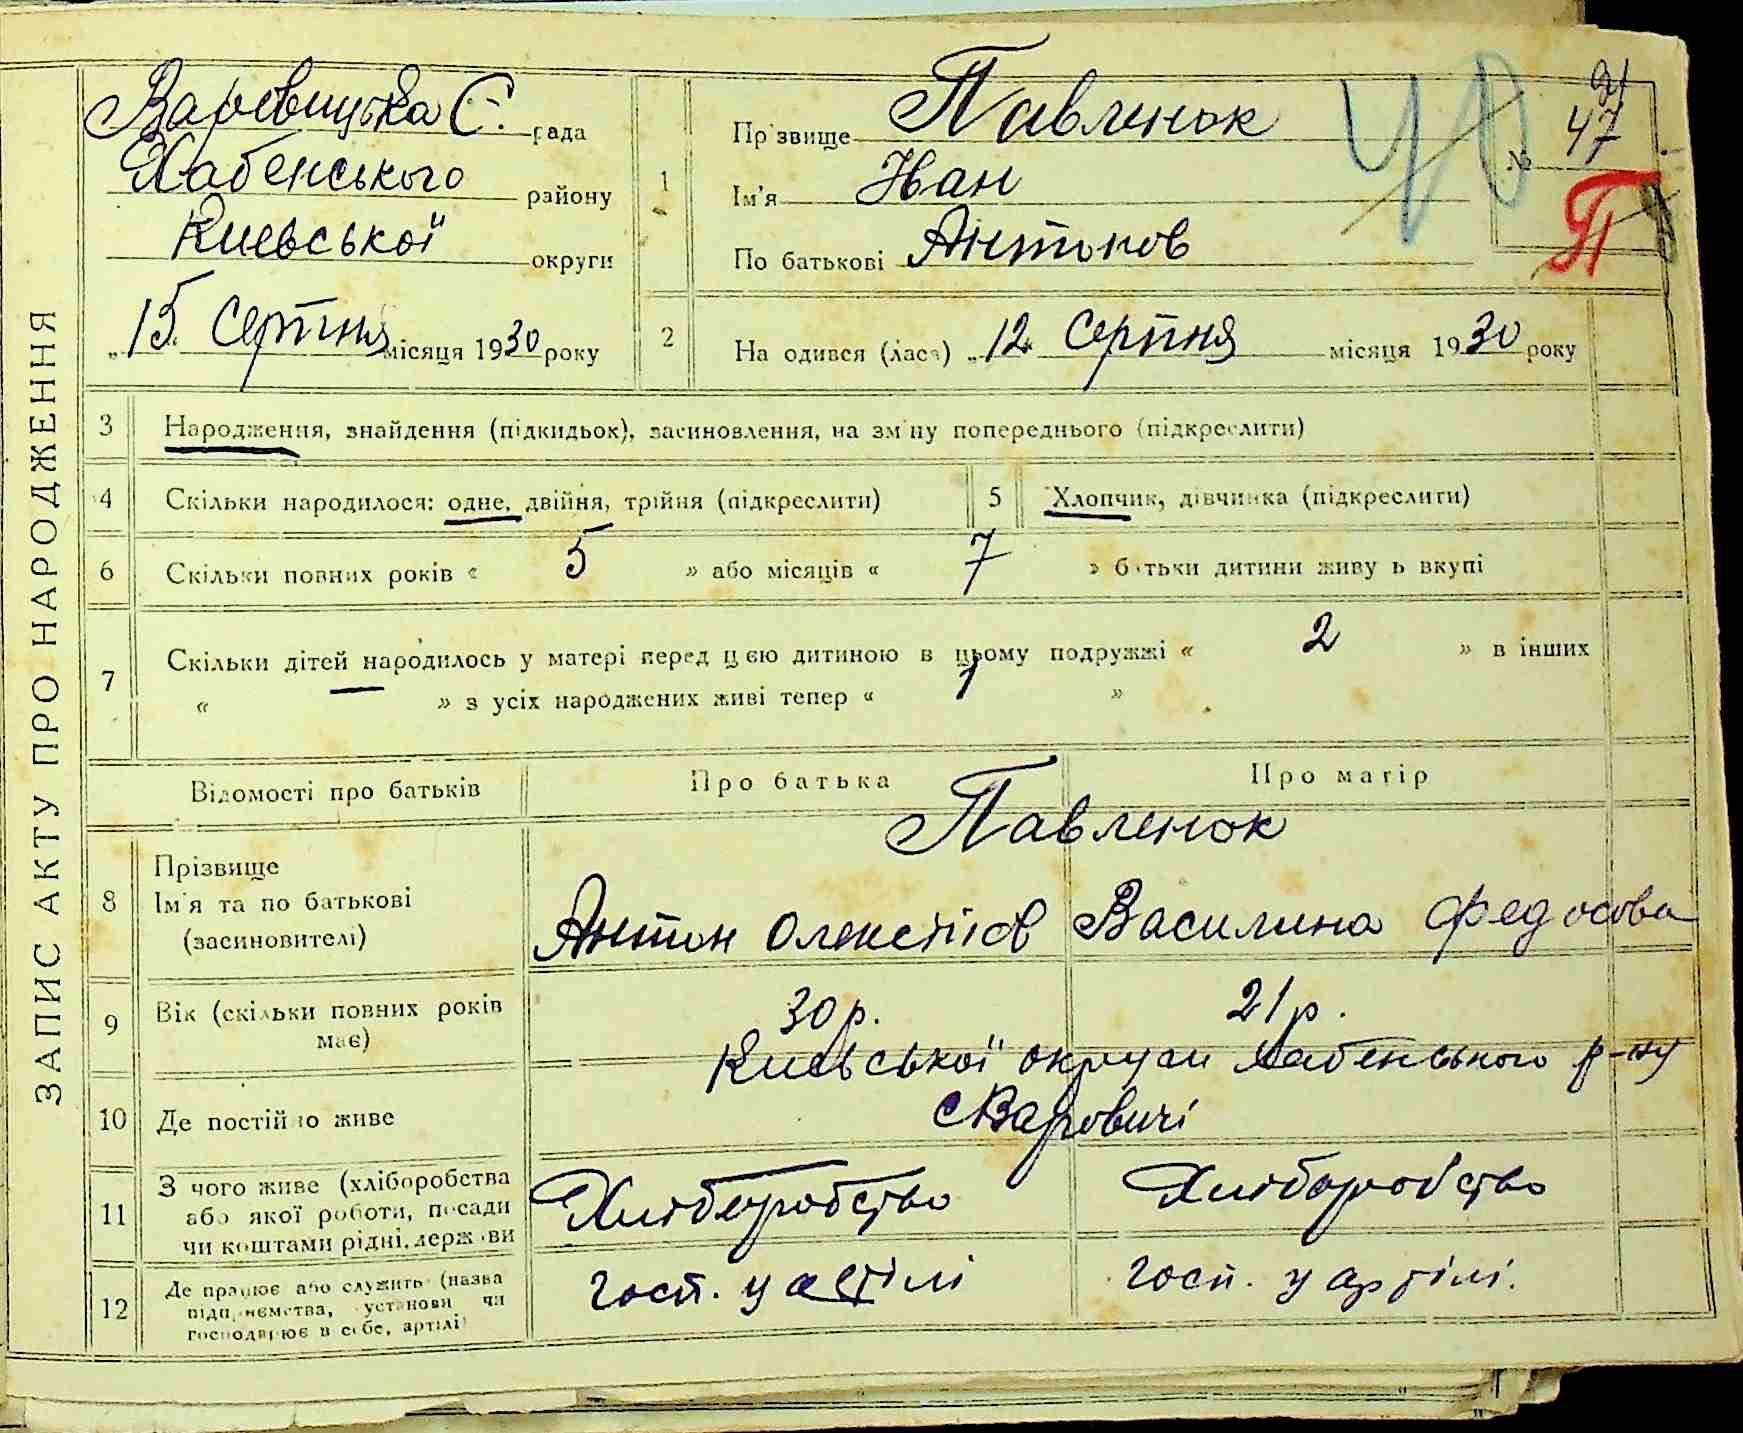 ЗАПИС АКТУ ПРО НАРОДЖЕННЯ
Варовицька С. рада
Хабенського району
Киевської округи
„15" Серпня місяця 1930 року
1
Прізвище Павленок
Ім'я Иван
По батькові Антонов
40
91
№ 47
П
2
На одився (лася) „12" Серпня місяця 1930 року
3 Народження, знайдення (підкидьок), засиновлення, на зміну попереднього (підкреслити)
4 Скільки народилося: одне, двійня, трійня (підкреслити)
5 Хлопчик, дівчинка (підкреслити)
6 Скільки повних років « 5 » або місяців « 7 » батьки дитини живуть вкупі
7 Скільки дітей народилось у матері перед цією дитиною в цьому подружжі « 2 » в інших
« — » з усіх народжених живі тепер « 1 »
Відомості про батьків Про батька Про матір
8 Прізвище
Ім'я та по батькові
(засиновителі)
Павленок
Антон Олексіїв Василина Федосова
9 Вік (скільки повних років
має)
30 р. 21 р.
10 Де постійно живе
Киевської округи Хабенського р-ну
с Варовичі
11 З чого живе (хліборобства
або якої роботи, посади
чи коштами рідні, держави
Хліборобство Хліборобство
12 Де працює або служить (назва
підприємства, установи чи
господарює в себе, артілі)
госп. у артілі госп. у артілі.